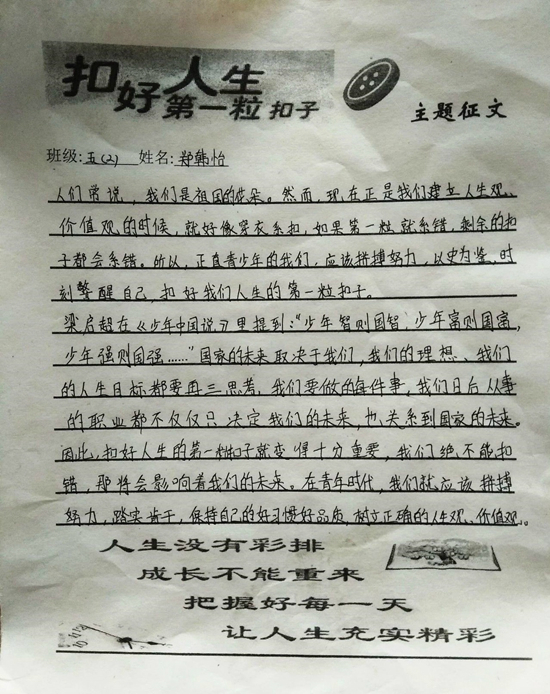 扣好人生
第一粒扣子
主题征文
班级:五(2) 姓名:郑韩怡
人们常说，我们是祖国的花朵。然而，现在正是我们建立人生观、
价值观的时候，就好像穿衣系扣，如果第一粒就系错，剩余的扣
子都会系错。所以，正直青少年的我们，应该拼搏努力，以史为鉴，时
刻警醒自己，扣好我们人生的第一粒扣子。
梁启超在《少年中国说》里提到："少年智则国智，少年富则国富，
少年强则国强……"国家的未来取决于我们，我们的理想、我们
的人生目标都要再三思考，我们要做的每件事，我们日后从事
的职业都不仅仅只决定我们的未来，也关系到国家的未来。
因此，扣好人生的第一粒扣子就变得十分重要，我们绝不能扣
错，那将会影响着我们的未来。在青年时代，我们就应该拼搏
努力，踏实肯干，保持自己的好习惯好品质，树立正确的人生观、价值观。
人生没有彩排
成长不能重来
把握好每一天
让人生充实精彩